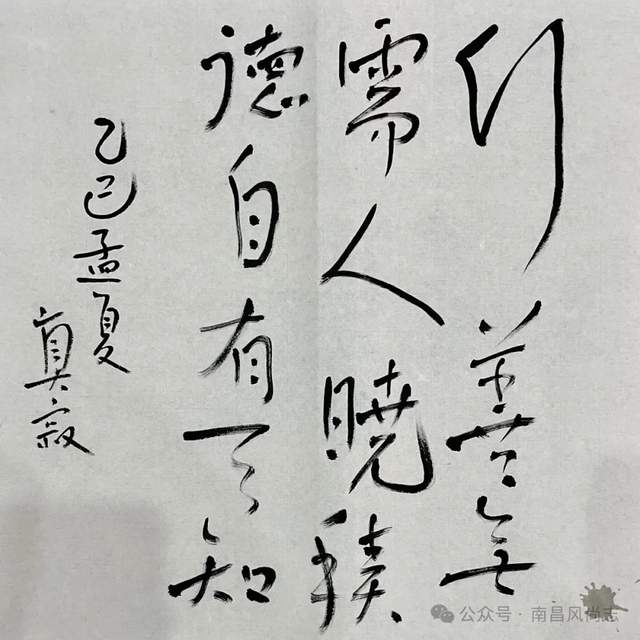 行善無
需人曉積
德自有天知
乙巳孟夏
真寂
公众号·南昌风尚志